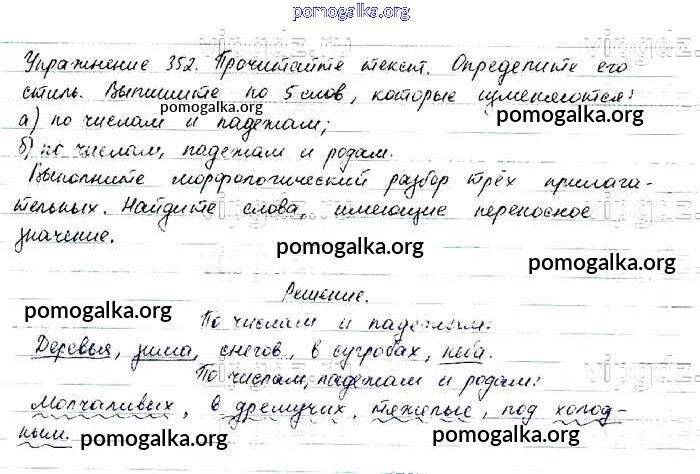 pomogalka.org
Упражнение 352. Прочитайте текст. Определите его
стиль. Выпишите по 5 слов, которые изменяются:
pomogalka.org
а) по числам и падежам;
pomogalka.org
б) по числам, падежам и родам.
Выполните морфологический разбор трёх прилага-
тельных. Найдите слова, имеющие переносное
значение.
pomogalka.org
pomogalka.org
Решение.
pomogalka.org
pomogalka.org
По числам и падежам:
Деревья, зима, снегов, в сугробах, неба.
По числам, падежам и родам:
Молчаливых, в дремучих, тяжелые, под холод-
ным.
pomogalka.org
pomogalka.org